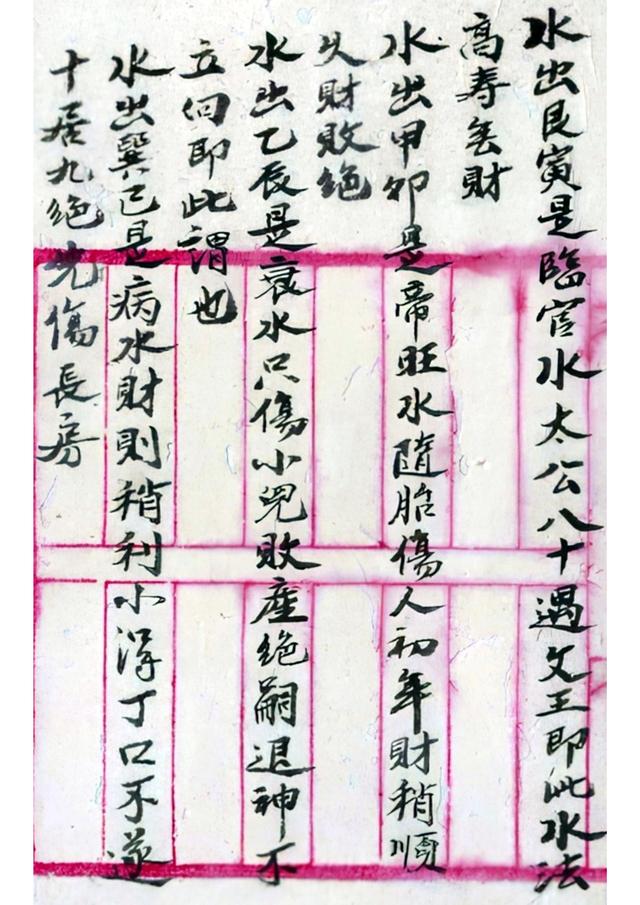 水出艮寅是臨官水太公八十遇文王即此水法
高寿無財
水出甲卯是帝旺水隨胎傷人初年財稍順
久財敗絕
水出乙辰是衰水只傷小兒敗產絕嗣退神不
立向即此謂也
水出巽巳是病水財則稍利小浔丁口不遂
十居九絕先傷長房